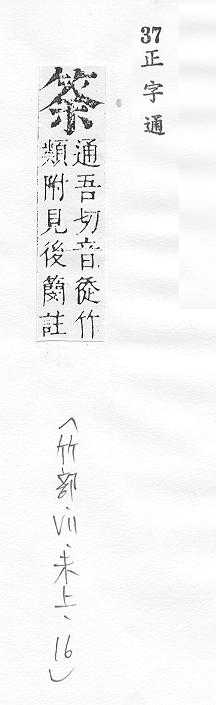 37 正字通
筡 通吾切音徒竹
類附見後簢註
（竹部、VII、未上、16）